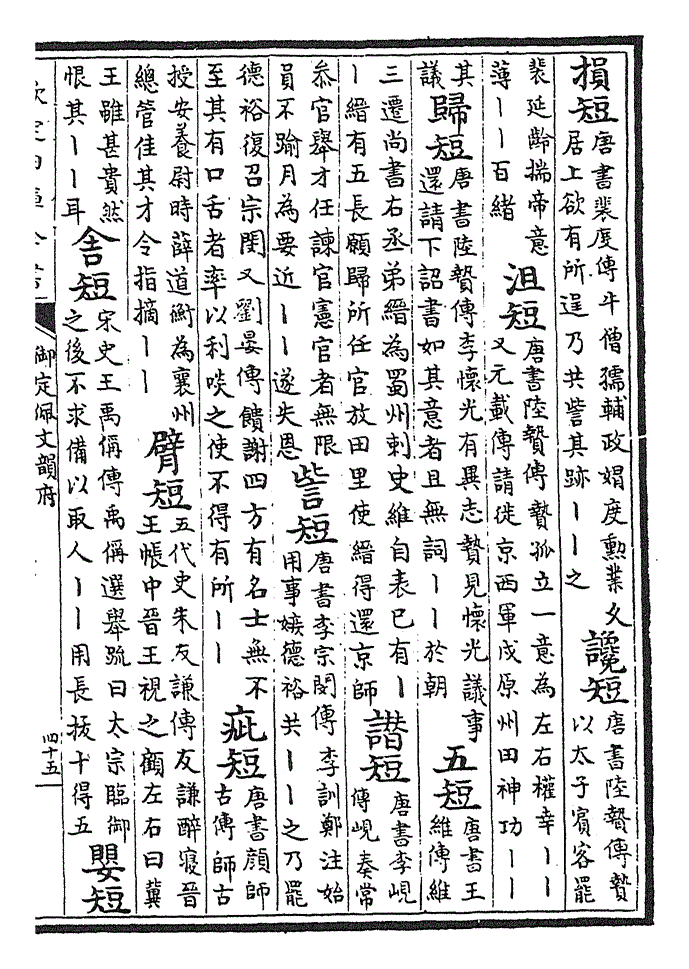 損短唐書裴度傳牛僧孺輔政娼度勲業久居上欲有所逞乃共訾其跡丨丨之讒短唐書陸贄傳贄以太子賓客罷
裴延齡揣帝意薄丨丨百緒沮短唐書陸贄傳贄孤立一意為左右權幸丨丨又元載傳請徙京西軍戍原州田神功丨丨
其議歸短唐書陸贄傳李懷光有異志贄見懷光議事還請下詔書如其意者且無詞丨丨於朝五短唐書王維傳維
三遷尚書右丞弟縉為蜀州刺史維自表已有丨丨縉有五長願歸所任官放田里使縉得還京師譖短唐書李峴傳峴奏常
叅官舉才任諫官憲官者無限員不踰月為要近丨丨遂失恩訾短唐書李宗閔傳李訓鄭注始用事嫉德裕共丨丨之乃罷
德裕復召宗閔又劉晏傳饋謝四方有名士無不至其有口舌者率以利啖之使不得有所丨丨疵短唐書顔師古傳師古
授安養尉時薛道衡為襄州總管佳其才令指摘丨丨臂短五代史朱友謙傳友謙醉寢晉王帳中晉王視之顧左右曰冀
王雖甚貴然恨其丨丨耳舍短宋史王禹偁傳禹偁選舉疏曰太宗臨御之後不求備以取人丨丨用長拔十得五嬰短
欽定四庫全書
御定佩文韻府
四十五